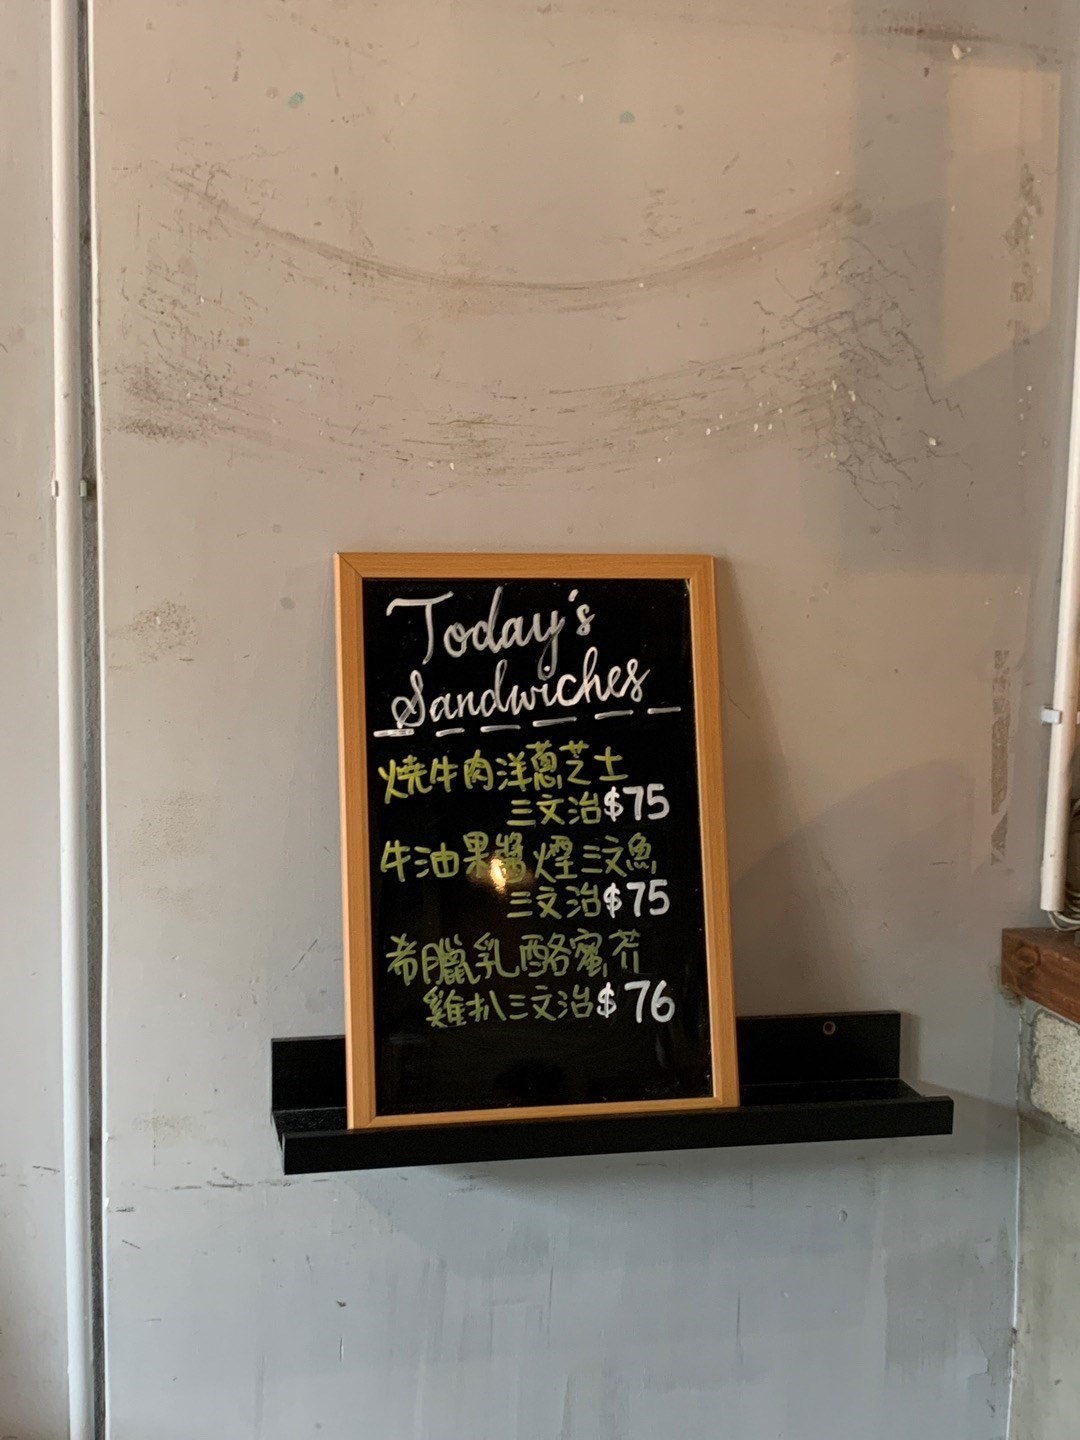 Today's
Sandwiches
燒牛肉洋蔥芝士
三文治$75
牛油果醬煙三文魚
三文治$75
希臘乳酪蜜芥
雞扒三文治$76